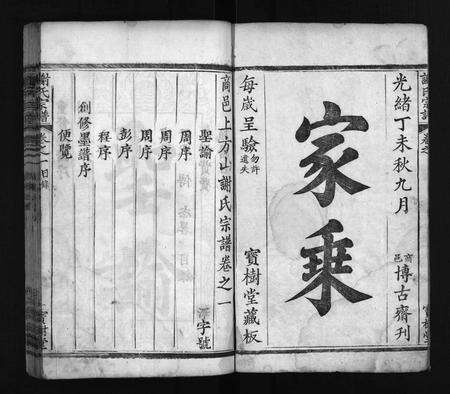 謝氏宗譜 卷之
光緒丁未秋九月 商邑博古齋刊
家乘
每歲呈驗勿許遺失 寶樹堂藏板
商邑上方山謝氏宗譜卷之一 字號
聖諭
周序
周序
周序
彭序
程序
創修墨譜序
便覽
謝氏宗譜 卷之一 目錄 寶樹堂